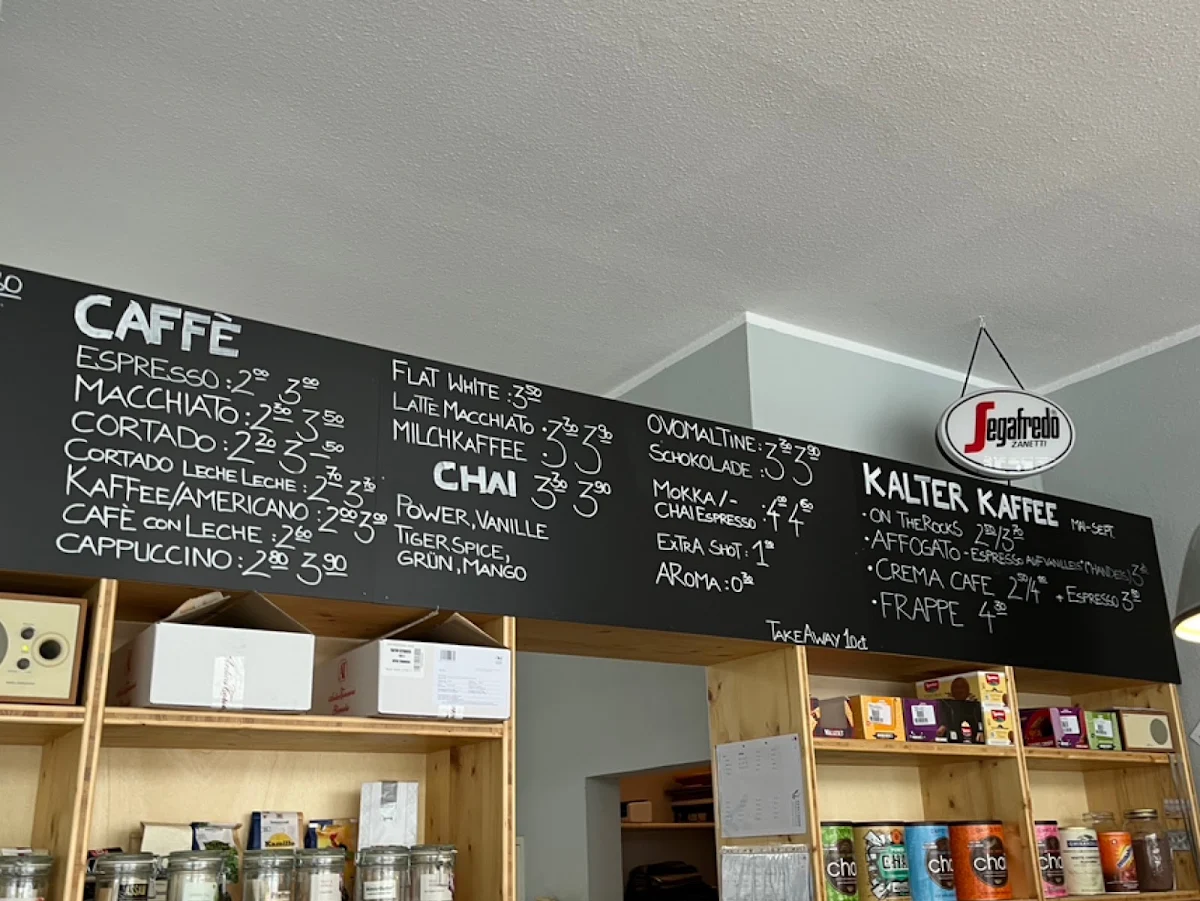 CAFFÈ
ESPRESSO : 2⁰⁰ 3⁰⁰
MACCHIATO : 2³⁰ 3⁵⁰
CORTADO : 2²⁰ 3.⁵⁰
CORTADO LECHE LECHE : 2⁷⁰ 3⁷⁰
KAFFEE/AMERICANO : 2⁰⁰ 3⁰⁰
CAFÈ CON LECHE : 2⁶⁰
CAPPUCCINO : 2⁸⁰ 3⁹⁰
FLAT WHITE : 3⁵⁰
LATTE MACCHIATO : 3³⁰ 3⁹⁰
MILCHKAFFEE
CHAI 3³⁰ 3⁹⁰
POWER, VANILLE
TIGER SPICE,
GRÜN, MANGO
OVOMALTINE : 3³⁰ 3⁹⁰
SCHOKOLADE :
MOKKA/-
CHAI ESPRESSO : 4⁰⁰ 4⁶⁰
EXTRA SHOT : 1⁰⁰
AROMA : 0³⁰
TAKE AWAY 10ct
KALTER KAFFEE MAI-SEPT.
• ON THE ROCKS 2⁵⁰/3⁷⁰
• AFFOGATO - ESPRESSO AUF VANILLEEIS
• CREMA CAFE + ESPRESSO 3⁸⁰
• FRAPPE 4³⁰
Segafredo
ZANETTI